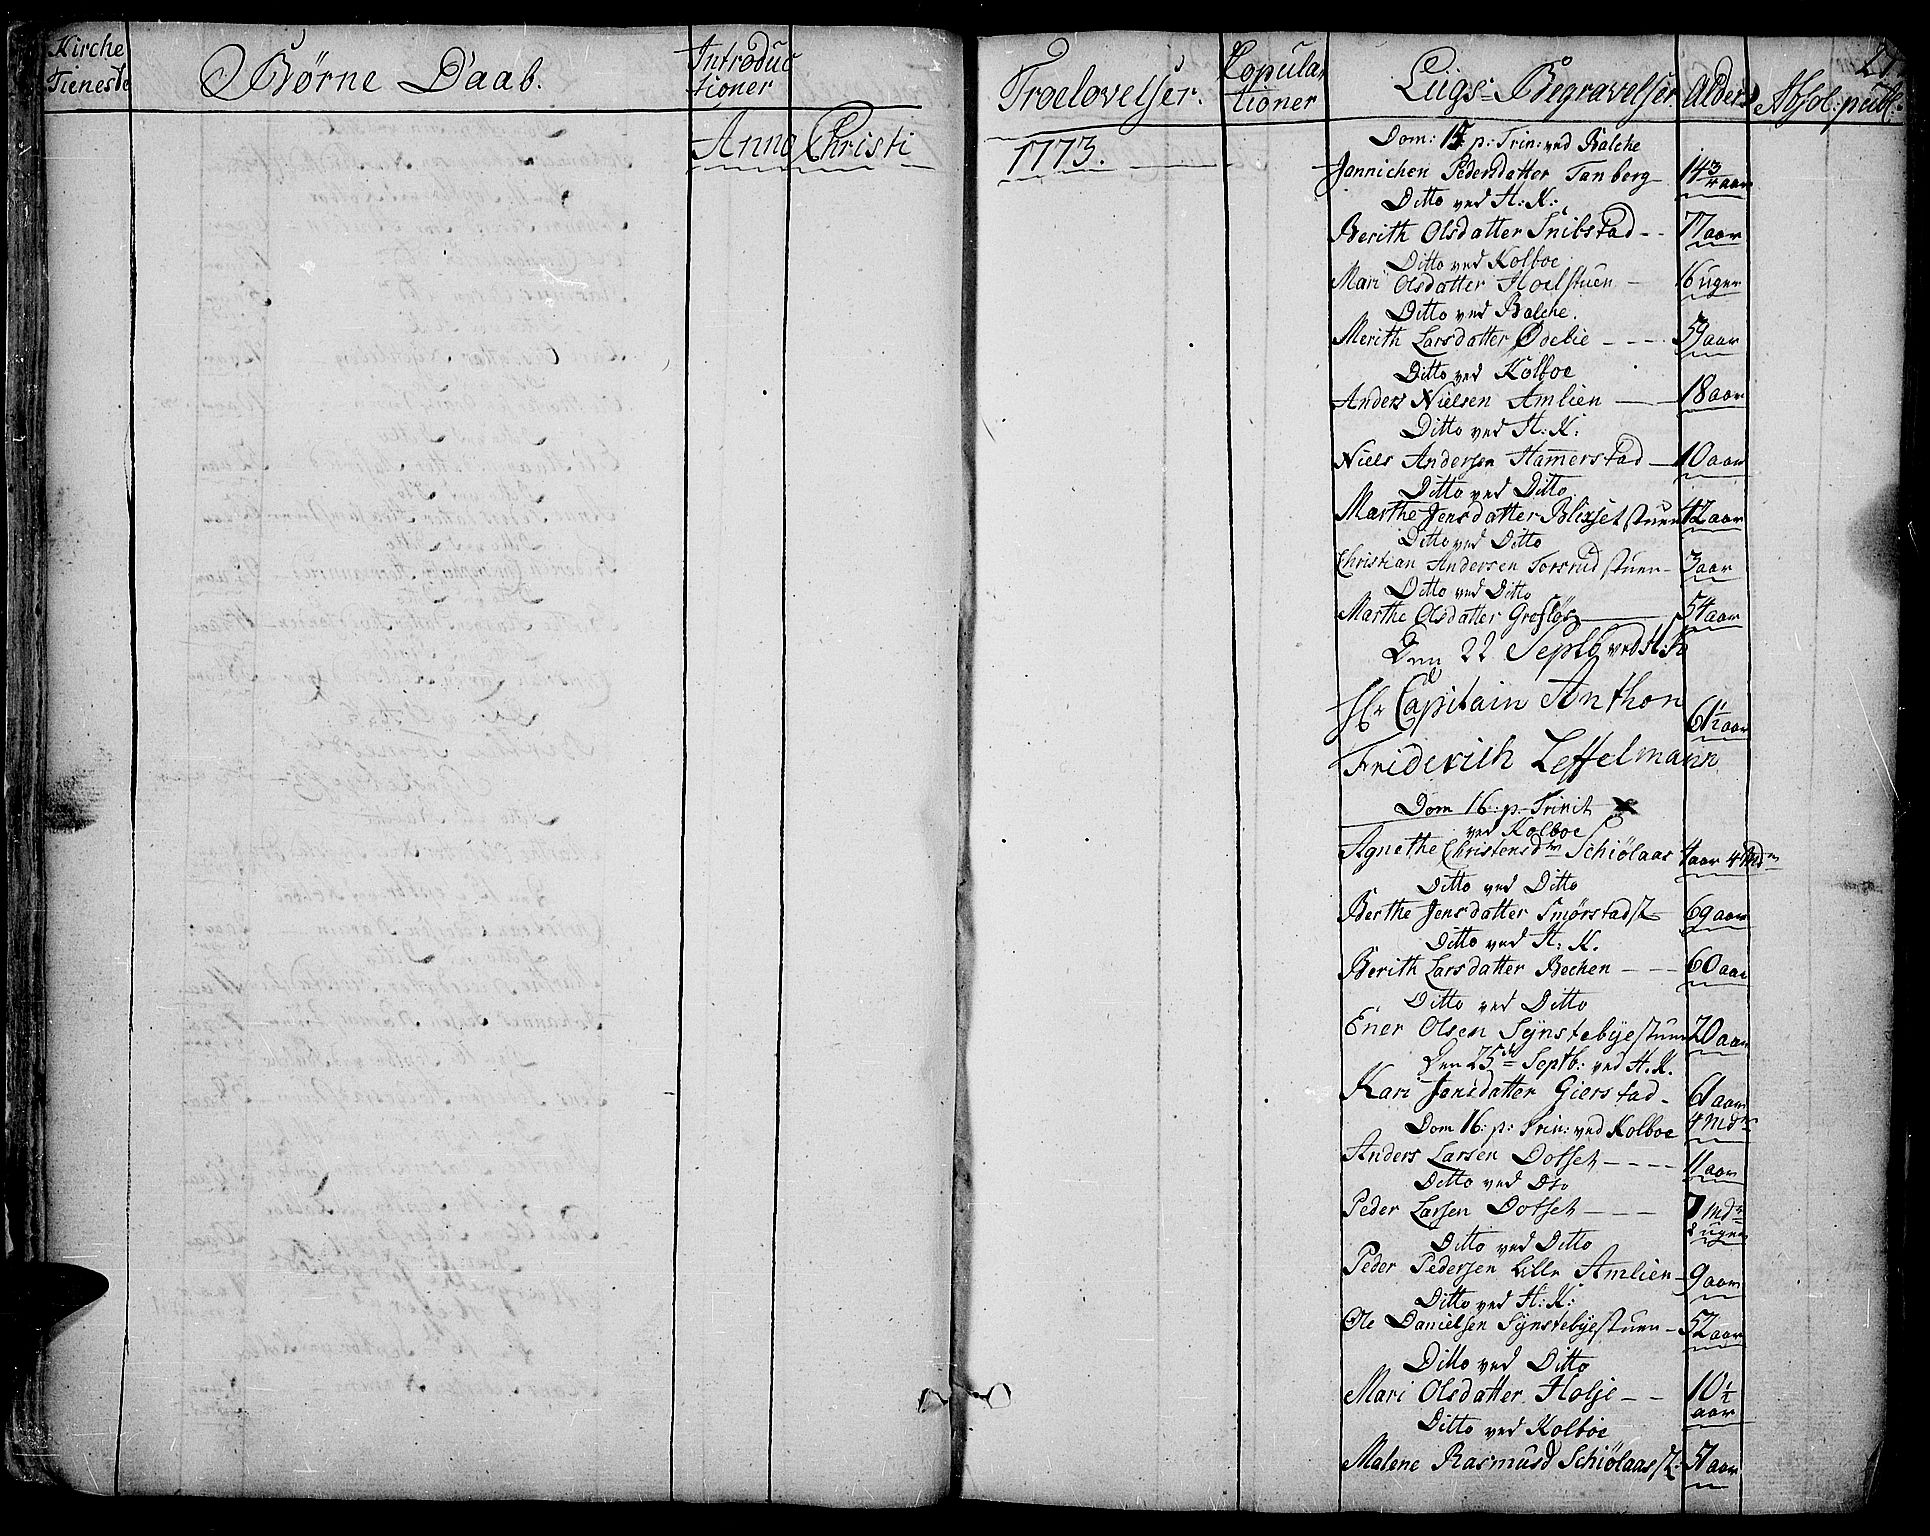 Kirche
Tieneste
Børne Daab.
Introduc
tioner
Troelovelser.
Copula
tioner
Liigs-Begravelser
Alders
Absol: publ:
Anno Christi
1773.
Dom: 15 p: Trin: ved Balche
Jannichen Pedersdatter Tanberg 14 3/4 aar
Ditto ved H: K:
Berith Olsdatter Snibstad - - 77 aar
Ditto ved Kolboe
Mari Olsdatter Hoelstuen - 16 uger
Ditto ved Balche.
Merith Larsdatter Ødelie - - - 59 aar
Ditto ved Kolboe
Anders Nielsen Amlien 18 aar
Ditto ved H: K:
Niels Andersen Hamerstad 10 aar
Ditto ved Ditto
Marthe Jensdatter Blixsetstuen 42 aar
Ditto ved Ditto
Christian Andersen Torsrudstuen - 3 aar
Ditto ved Ditto
Marthe Olsdatter Gresløs 54 aar
Den 22 Septb ved H: K
Hr Capitain Anthon
61 1/2 aar
Friderich Leffelmann
Dom 16: p: Trinit
ved Kolboe
Agnethe Christensdtr Schiølaas 4 aar 4 Mdr
Ditto ved Ditto
Berthe Jensdatter Smørstadst 69 aar
Ditto ved H: K.
Berith Larsdatter Bechen - - - 60 aar
Ditto ved Ditto
Ener Olsen Synstebyestuen 20 aar
Den 25de Septb: ved H. K.
Kari Jensdatter Gierstad - 61 aar
4 Mdr
Dom 16: p: Trin: ved Kolboe
Anders Larsen Dotset - - - - 11 aar
Ditto ved Dto
Peder Larsen Dotset - - - 7 Mdr
2 uger
Ditto ved Ditto
Peder Pedersen Lille Amlien - 9 aar
Ditto ved H: K:
Ole Danielsen Synstebyestuen - 52 aar
Ditto ved Ditto
Mari Olsdatter Holje - - 10 1/2
aar
Ditto ved Kolboe
Malene Rasmusd Schiølaasst: 57 aar